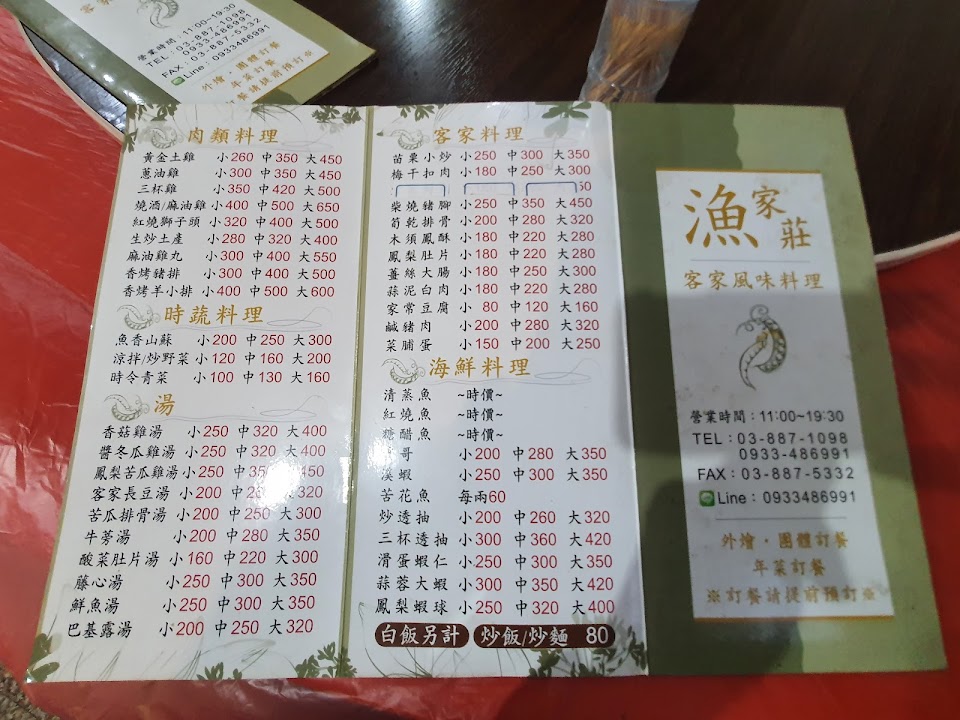 營業時間：11:00~19:30
TEL：03-887-1098
0933-486991
FAX：03-887-5332
Line：0933486991
外燴・團體訂餐
年菜訂餐
肉類料理
黃金土雞 小260 中350 大450
蔥油雞 小300 中350 大450
三杯雞 小350 中420 大500
燒酒/麻油雞 小400 中500 大650
紅燒獅子頭 小320 中400 大500
生炒土產 小280 中320 大400
麻油雞丸 小300 中400 大550
香烤豬排 小300 中400 大500
香烤羊小排 小400 中500 大600
時蔬料理
魚香山蘇 小200 中250 大300
涼拌/炒野菜 小120 中160 大200
時令青菜 小100 中130 大160
湯
香菇雞湯 小250 中320 大400
醬冬瓜雞湯 小250 中320 大400
鳳梨苦瓜雞湯 小250 中350 大450
客家長豆湯 小200 大320
苦瓜排骨湯 小200 中250 大300
牛蒡湯 小200 中280 大350
酸菜肚片湯 小160 中220 大300
藤心湯 小250 中300 大350
鮮魚湯 小250 中300 大350
巴基露湯 小200 中250 大320
客家料理
苗栗小炒 小250 中300 大350
梅干扣肉 小180 中250 大300
柴燒豬腳 小250 中350 大450
筍乾排骨 小200 中280 大320
木須鳳酥 小180 中220 大280
鳳梨肚片 小180 中220 大280
薑絲大腸 小180 中250 大300
蒜泥白肉 小180 中220 大280
家常豆腐 小 80 中120 大160
鹹豬肉 小200 中280 大320
菜脯蛋 小150 中200 大250
海鮮料理
清蒸魚 ~時價~
紅燒魚 ~時價~
糖醋魚 ~時價~
哥 小200 中280 大350
溪蝦 小250 中300 大350
苦花魚 每兩60
炒透抽 小200 中260 大320
三杯透抽 小300 中360 大420
滑蛋蝦仁 小250 中300 大350
蒜蓉大蝦 小300 中350 大420
鳳梨蝦球 小250 中320 大400
白飯另計 炒飯/炒麵 80
漁家莊
客家風味料理
營業時間：11:00~19:30
TEL：03-887-1098
0933-486991
FAX：03-887-5332
Line：0933486991
外燴・團體訂餐
年菜訂餐
※訂餐請提前預訂※